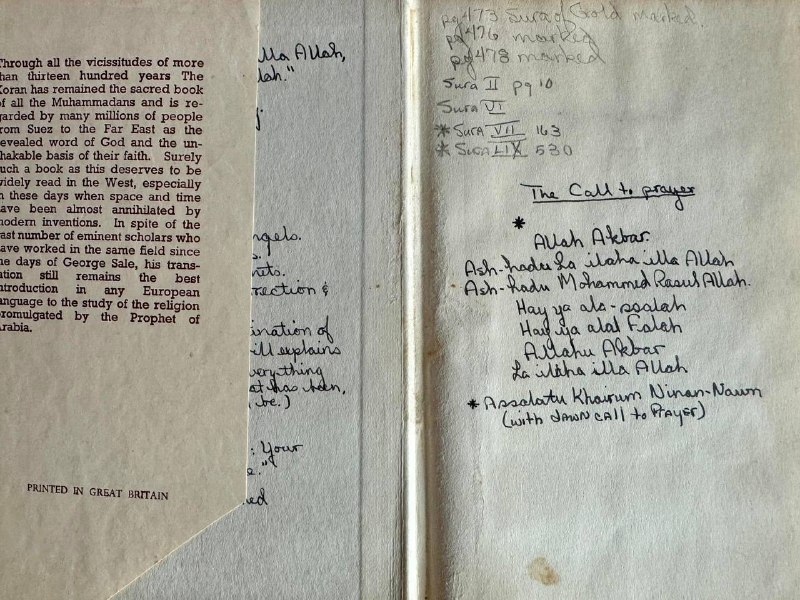 Through all the vicissitudes of more
than thirteen hundred years The
Koran has remained the sacred book
of all the Muhammadans and is re-
garded by many millions of people
from Suez to the Far East as the
revealed word of God and the un-
shakable basis of their faith. Surely
such a book as this deserves to be
widely read in the West, especially
in these days when space and time
have been almost annihilated by
modern inventions. In spite of the
vast number of eminent scholars who
have worked in the same field since
the days of George Sale, his trans-
lation still remains the best
introduction in any European
language to the study of the religion
promulgated by the Prophet of
Arabia.
PRINTED IN GREAT BRITAIN
illa Allah,
lah."
ngels.
rection &
ination of
ill explains
verything
at has been,
be.)
: Your
pg 473 Sura of Gold marked.
pg 476 marked
pg 478 marked
Sura II pg 10
Sura VI
* Sura VII 163
* Sura LIX 530
The Call to prayer
*
Allah Akbar.
Ash-hadu La ilaha illa Allah
Ash-hadu Mohammed Rasul Allah.
Hay ya ala-ssalah
Hay ya alal Falah
Allahu Akbar
La ilaha illa Allah
* Assalatu Khairum Ninan-Nawn
(with dawn call to Prayer)